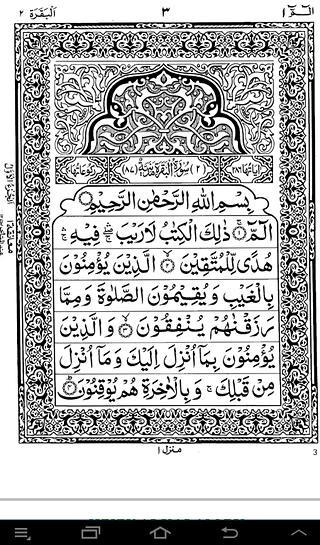 الٓمّٓ ١ ٣ اَلْبَقَرَة ٢
اٰيَاتُهَا ٢٨٦ (٢) سُوْرَةُ الْبَقَرَةِ مَدَنِيَّةٌ (٨٧) رُكُوْعَاتُهَا ٤٠
بِسْمِ اللّٰهِ الرَّحْمٰنِ الرَّحِيْمِ
الٓمّٓ ۝١ ذٰلِكَ الْكِتٰبُ لَا رَيْبَ ۛ فِيْهِ ۛ
هُدًى لِّلْمُتَّقِيْنَ ۝٢ الَّذِيْنَ يُؤْمِنُوْنَ
بِالْغَيْبِ وَيُقِيْمُوْنَ الصَّلٰوةَ وَمِمَّا
رَزَقْنٰهُمْ يُنْفِقُوْنَ ۝٣ وَالَّذِيْنَ
يُؤْمِنُوْنَ بِمَاۤ اُنْزِلَ اِلَيْكَ وَمَاۤ اُنْزِلَ
مِنْ قَبْلِكَ ۚ وَبِالْاٰخِرَةِ هُمْ يُوْقِنُوْنَ ۝٤
منزل ١
3